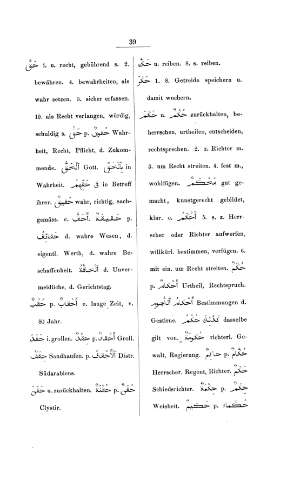 39
حَقَّ i. u. recht, gebührend s. 2.
bewähren. 4. bewahrheiten, als
wahr setzen. 5. sicher erfassen.
10. als Recht verlangen, würdig,
schuldig s. حَقّ p. حُقُوق Wahr-
heit, Recht, Pflicht, d. Zukom-
mende. اَلْحَقّ Gott. بِٱلْحَقِّ in
Wahrheit. فِى حَقِّهِمْ in Betreff
ihrer. حَقِيق wahr, richtig, sach-
gemäss. c. أَحَقّ. حَقِيقَة p.
حَقَائِق d. wahre Wesen, d.
eigentl. Werth, d. wahre Be-
schaffenheit. اَلْحَاقَّة d. Unver-
meidliche, d. Gerichtstag.
حُقُب p. أَحْقَاب e. lange Zeit, e.
80 Jahr.
حَقَدَ i. grollen. حِقْد p. أَحْقَاد Groll.
حِقْف Sandhaufen. p. اَلْأَحْقَاف Distr.
Südarabiens.
حَقَنَ u. zurückhalten. حُقْنَة p. حُقَن
Clystir.
حَكَّ u. reiben. 8. s. reiben.
حَكَرَ 1. 8. Getreide speichern u.
damit wuchern.
حَكَمَ u. حُكْم zurückhalten, be-
herrschen, urtheilen, entscheiden,
rechtsprechen. 2. z. Richter m.
3. um Recht streiten. 4. fest m.,
wohlfügen. مُحْكَم gut ge-
macht, kunstgerecht gebildet,
klar. c. أَحْكَم. 5. s. z. Herr-
scher oder Richter aufwerfen,
willkürl. bestimmen, verfügen. 6.
mit ein. um Recht streiten. حُكْم
p. أَحْكَام Urtheil, Rechtspruch.
أَحْكَام ٱلنُّجُوم Bestimmungen d.
Gestirne. حُكْمُهُ كَـ dasselbe
gilt von. حُكُومَة richterl. Ge-
walt, Regierung. حَاكِم p. حُكَّام
Herrscher, Regent, Richter. حَكَم
Schiedsrichter. حِكْمَة p. حِكَم
Weisheit. حَكِيم p. حُكَمَاء